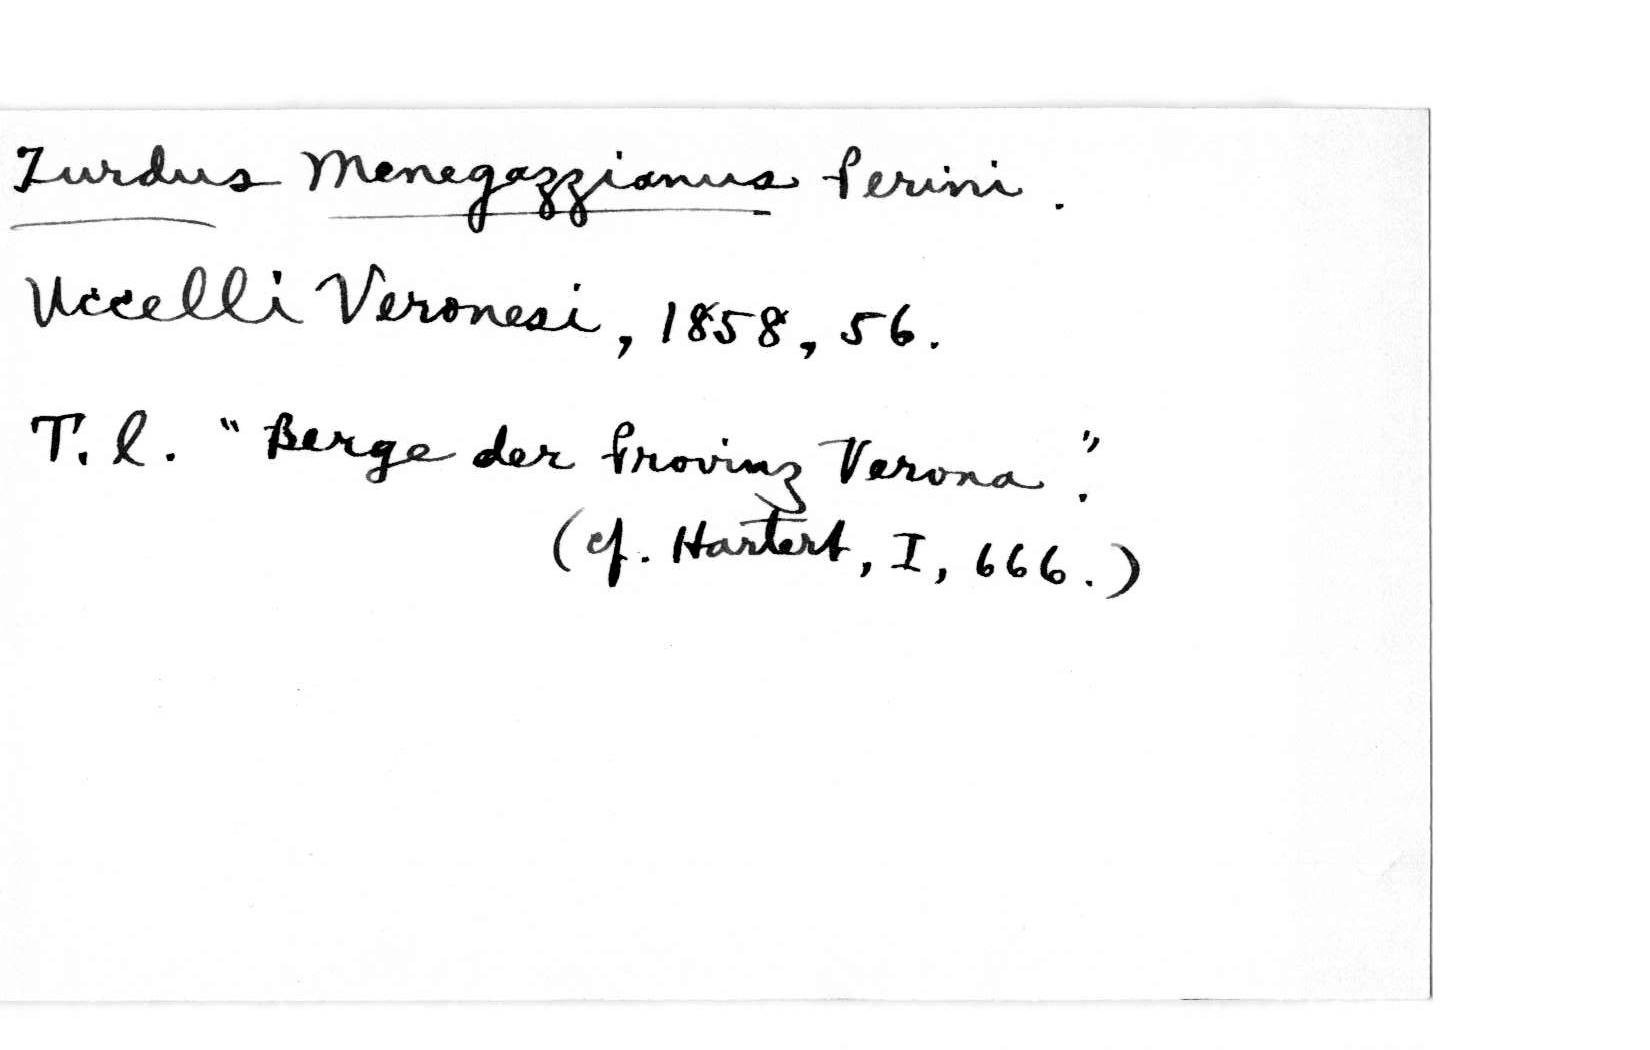 Turdus Menegazzianus Perini.
Uccelli Veronesi, 1858, 56.
T. l. "Berge der Provinz Verona".
(cf. Hartert, I, 666.)